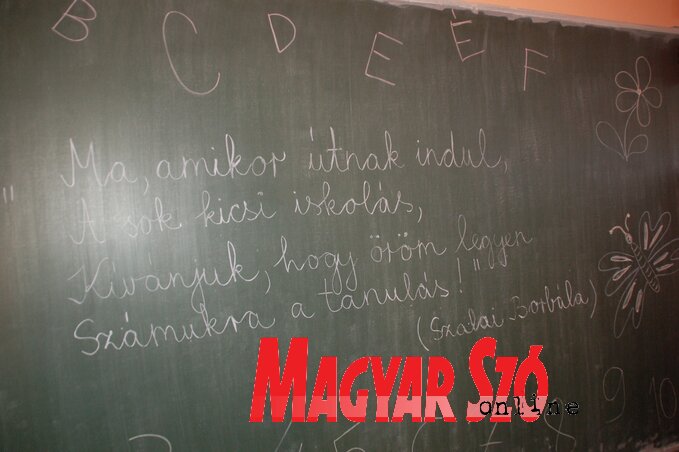 B C D E É F
"Ma, amikor útnak indul,
A sok kicsi iskolás,
Kívánjuk, hogy öröm legyen
Számukra a tanulás!"
(Szalai Borbála)
MAGYAR SZÓ
online
9 10